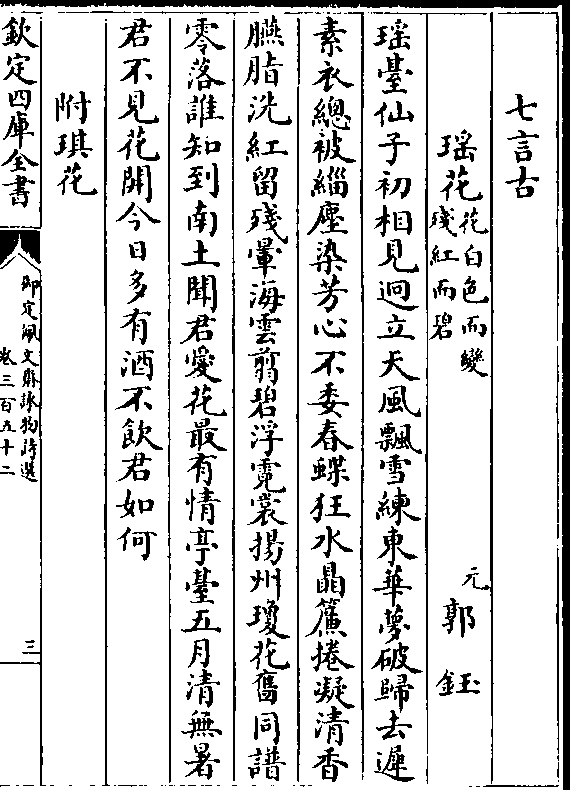 七言古
瑶花花白色而變殘紅而碧 元郭鈺
瑶臺仙子初相見迥立天風飄雪練東華夢破歸去遲
素衣總被緇塵染芳心不委春蝶狂水晶簾捲凝清香
臙脂洗紅留殘暈海雲翦碧浮霓裳揚州瓊花舊同譜
零落誰知到南土聞君愛花最有情亭臺五月清無暑
君不見花開今日多有酒不飲君如何
附琪花
欽定四庫全書
御定佩文齋詠物詩選
卷三百五十二
三